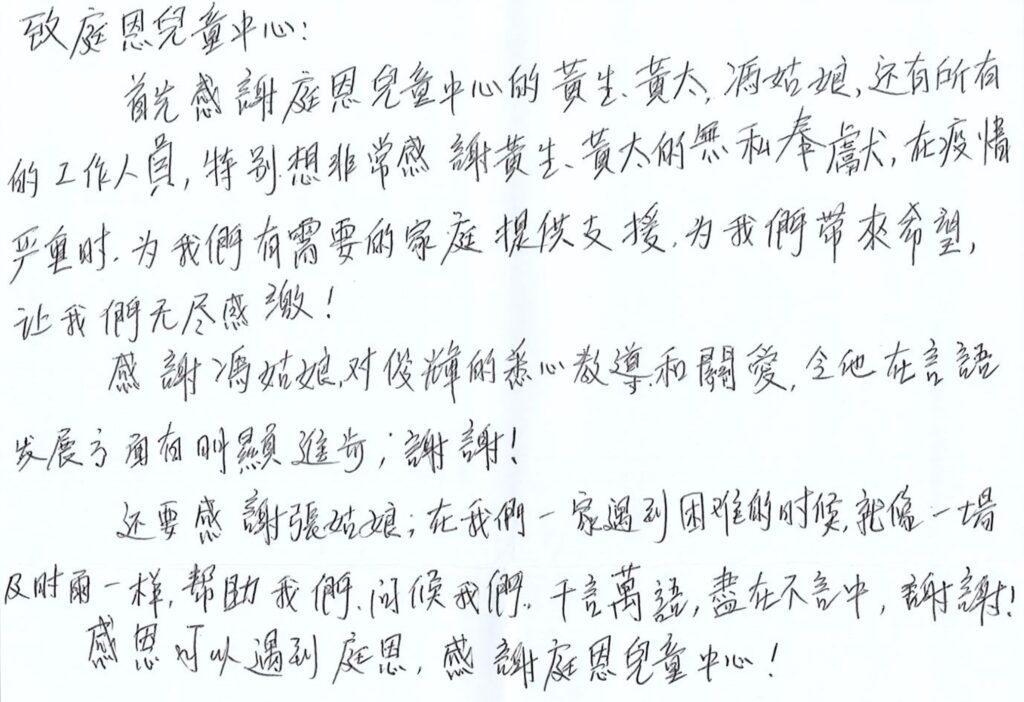 致庭恩兒童中心:
首先感謝庭恩兒童中心的黃生、黃太,馮姑娘,还有所有
的工作人員,特别想非常感謝黃生、黃太的無私奉獻,在疫情
严重时.为我們有需要的家庭提供支援.为我們带來希望,
让我們无尽感激!
感謝馮姑娘.对俊輝的悉心教導和關愛,令他在言語
发展方面有明顯進步;謝謝!
还要感謝張姑娘;在我們一家遇到困难的时候,就像一場
及时雨一样,帮助我們.问候我們.千言萬語,盡在不言中,謝謝!
感恩可以遇到庭恩,感謝庭恩兒童中心!